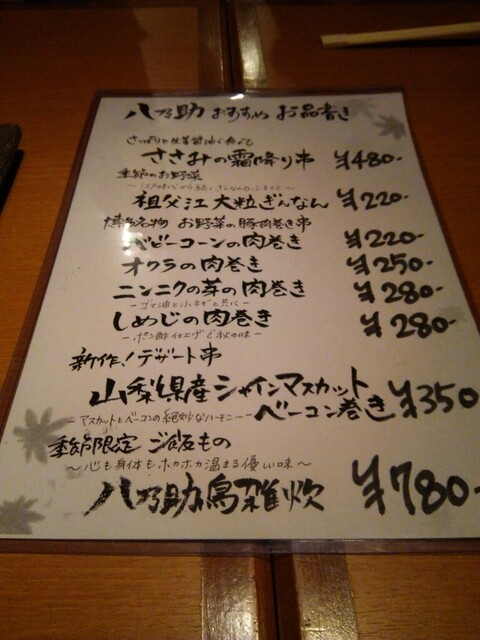 八乃助 おすすめ お品書き
さっぱりと生姜醤油で
ささみの霜降り串 ¥480-
季節のお野菜
祖父江大粒ぎんなん ¥220-
博多名物 お野菜の豚肉巻き串
ベビーコーンの肉巻き ¥220-
オクラの肉巻き ¥250-
ニンニクの芽の肉巻き ¥280-
-ゴマ油と小ネギと共に-
しめじの肉巻き ¥280-
-ポン酢仕上げで秋の味-
新作!デザート串
山梨県産シャインマスカット
ベーコン巻き ¥350
-マスカットとベーコンの絶妙なハーモニー-
季節限定 ご飯もの
~心も身体もホカホカ温まる優しい味~
八乃助鳥雑炊 ¥780-